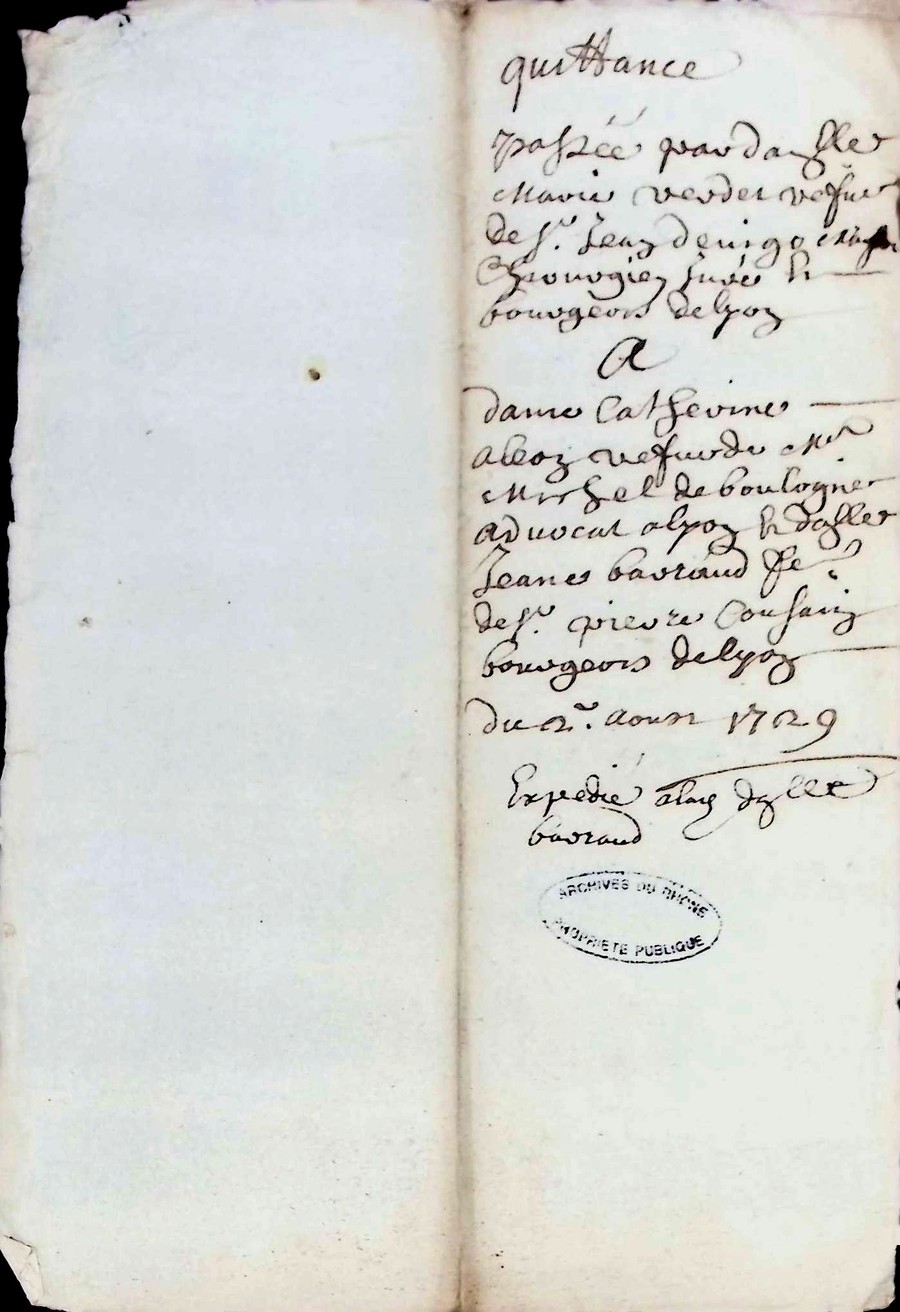 quittance
passéé par dalle
Marie verdet vefue
de Sr. Jean
Chirurgien Juré &
bourgeois de lyon
A
dame Catherine
vefue de Mre
Michel de boulogne
advocat a lyon & dalle
Jeane barraud fe.
de Sr. pierre Cousain
bourgeois de lyon
du 2e. aoust 1729
Expedié a lad dalle
barraud
ARCHIVES DU RHONE
PROPRIETE PUBLIQUE